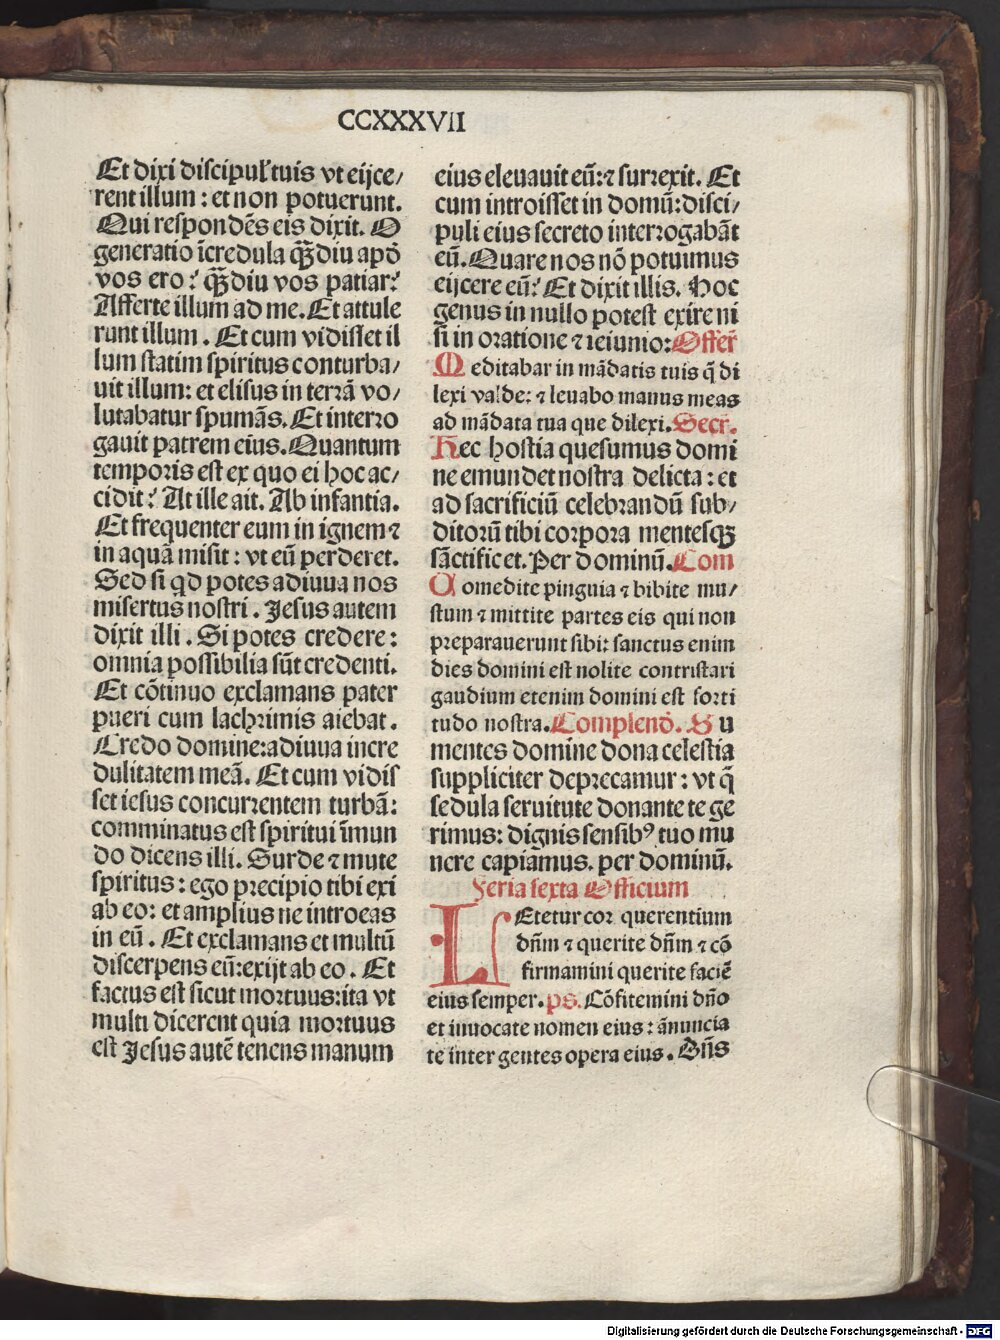 CCXXXVII
Et dixi discipul' tuis vt eijce/
rent illum : et non potuerunt.
Qui respondēs eis dixit. O
generatio īcredula q̄ȝdiu apđ
vos ero? q̄ȝdiu vos patiar?
Afferte illum ad me. Et attule
runt illum . Et cum vidisset il
lum statim spiritus conturba/
uit illum: et elisus in terrā vo/
lutabatur spumās. Et interro
gauit patrem eius. Quantum
temporis est ex quo ei hoc ac/
cidit? At ille ait. Ab infantia.
Et frequenter eum in ignem ⁊
in aquā misit : vt eū perderet.
Sed si qd potes adiuua nos
misertus nostri . Jesus autem
dixit illi . Si potes credere :
omnia possibilia sūt credenti.
Et cōtinuo exclamans pater
pueri cum lachrimis aiebat .
Credo domine: adiuua incre
dulitatem meā. Et cum vidis
set iesus concurrentem turbā:
comminatus est spiritui īmun
do dicens illi. Surde ⁊ mute
spiritus : ego precipio tibi exi
ab eo: et amplius ne introeas
in eū . Et exclamans et multū
discerpens eū: exijt ab eo . Et
factus est sicut mortuus: ita vt
multi dicerent quia mortuus
est Jesus autē tenens manum
eius eleuauit eū: ⁊ surrexit. Et
cum introisset in domū: disci/
puli eius secreto interrogabāt
eū. Quare nos nō potuimus
eijcere eū? Et dixit illis. Hoc
genus in nullo potest exire ni
si in oratione ⁊ ieiunio: Offer̄
Meditabar in mādatis tuis q̄ di
lexi valde: ⁊ leuabo manus meas
ad mādata tua que dilexi. Secr̄.
Hec hostia quesumus domi
ne emundet nostra delicta : et
ad sacrificiū celebrandū sub/
ditorū tibi corpora mentesqȝ
sāctificet. Per dominū. Com
Comedite pinguia ⁊ bibite mu/
stum ⁊ mittite partes eis qui non
preparauerunt sibi: sanctus enim
dies domini est nolite contristari
gaudium etenim domini est forti
tudo nostra. Complenđ. Su
mentes domine dona celestia
suppliciter deprecamur : vt q̄
sedula seruitute donante te ge
rimus: dignis sensibꝰ tuo mu
nere capiamus. per dominū.
Feria sexta Officium
LEtetur cor querentium
dn̄m ⁊ querite dn̄m ⁊ cō
firmamini querite faciē
eius semper. ps. Cōfitemini dn̄o
et inuocate nomen eius : ānuncia
te inter gentes opera eius . Dn̄s
Digitalisierung gefördert durch die Deutsche Forschungsgemeinschaft - DFG